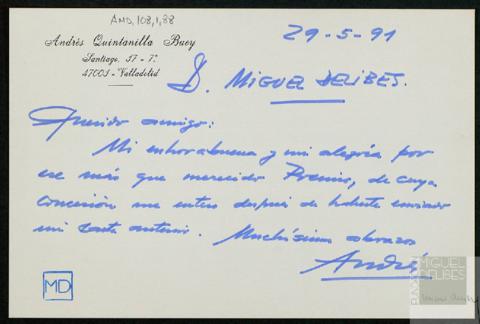 AMD,108,1,88
Andrés Quintanilla Buey
Santiago, 57 - 7º
47001 - Valladolid
29-5-91
D. MIGUEL DELIBES.
Querido amigo:
Mi enhorabuena y mi alegría por
ese más que merecido Premio, de cuya
concesión me entero después de haberte enviado
mi carta anterior. Muchísimos abrazos
Andrés
MD
FUNDACIÓN
MIGUEL
DELIBES